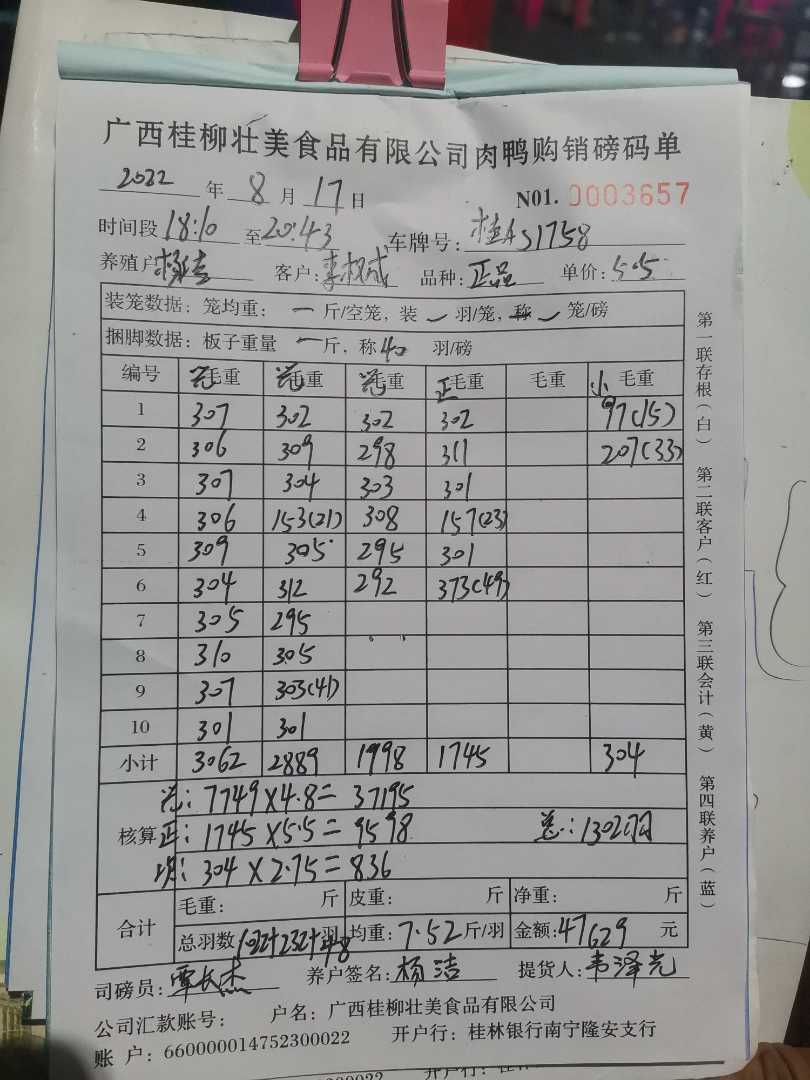 广西桂柳壮美食品有限公司肉鸭购销磅码单
2022 年 8 月 17 日 N01. 0003657
时间段 18:10 至 20:43 车牌号: 桂AS1758
养殖户 杨洁 客户: 李权成 品种: 正品 单价: 5.5
装笼数据: 笼均重: 一 斤/空笼, 装 羽/笼, 称 笼/磅
捆脚数据: 板子重量 一 斤, 称 40 羽/磅
编号 毛重 毛重 毛重 正毛重 毛重 小毛重
1 307 302 302 302 97(15)
2 306 309 298 311 207(33)
3 307 304 303 301
4 306 153(21) 308 157(23)
5 309 305 295 301
6 304 312 292 373(49)
7 305 295
8 310 305
9 307 303(41)
10 301 301
小计 3062 2889 1998 1745 304
核算
: 7749×4.8= 37195
正: 1745×5.5= 9598 总: 1302羽
: 304×2.75=836
合计 毛重: 斤 皮重: 斤 净重: 斤
总羽数 1022+232+48 羽 均重: 7.52 斤/羽 金额: 47629 元
司磅员: 覃长杰 养户签名: 杨洁 提货人: 韦泽光
公司汇款账号: 户名: 广西桂柳壮美食品有限公司
账 户: 660000014752300022 开户行: 桂林银行南宁隆安支行
第一联存根(白) 第二联客户(红) 第三联会计(黄) 第四联养户(蓝)